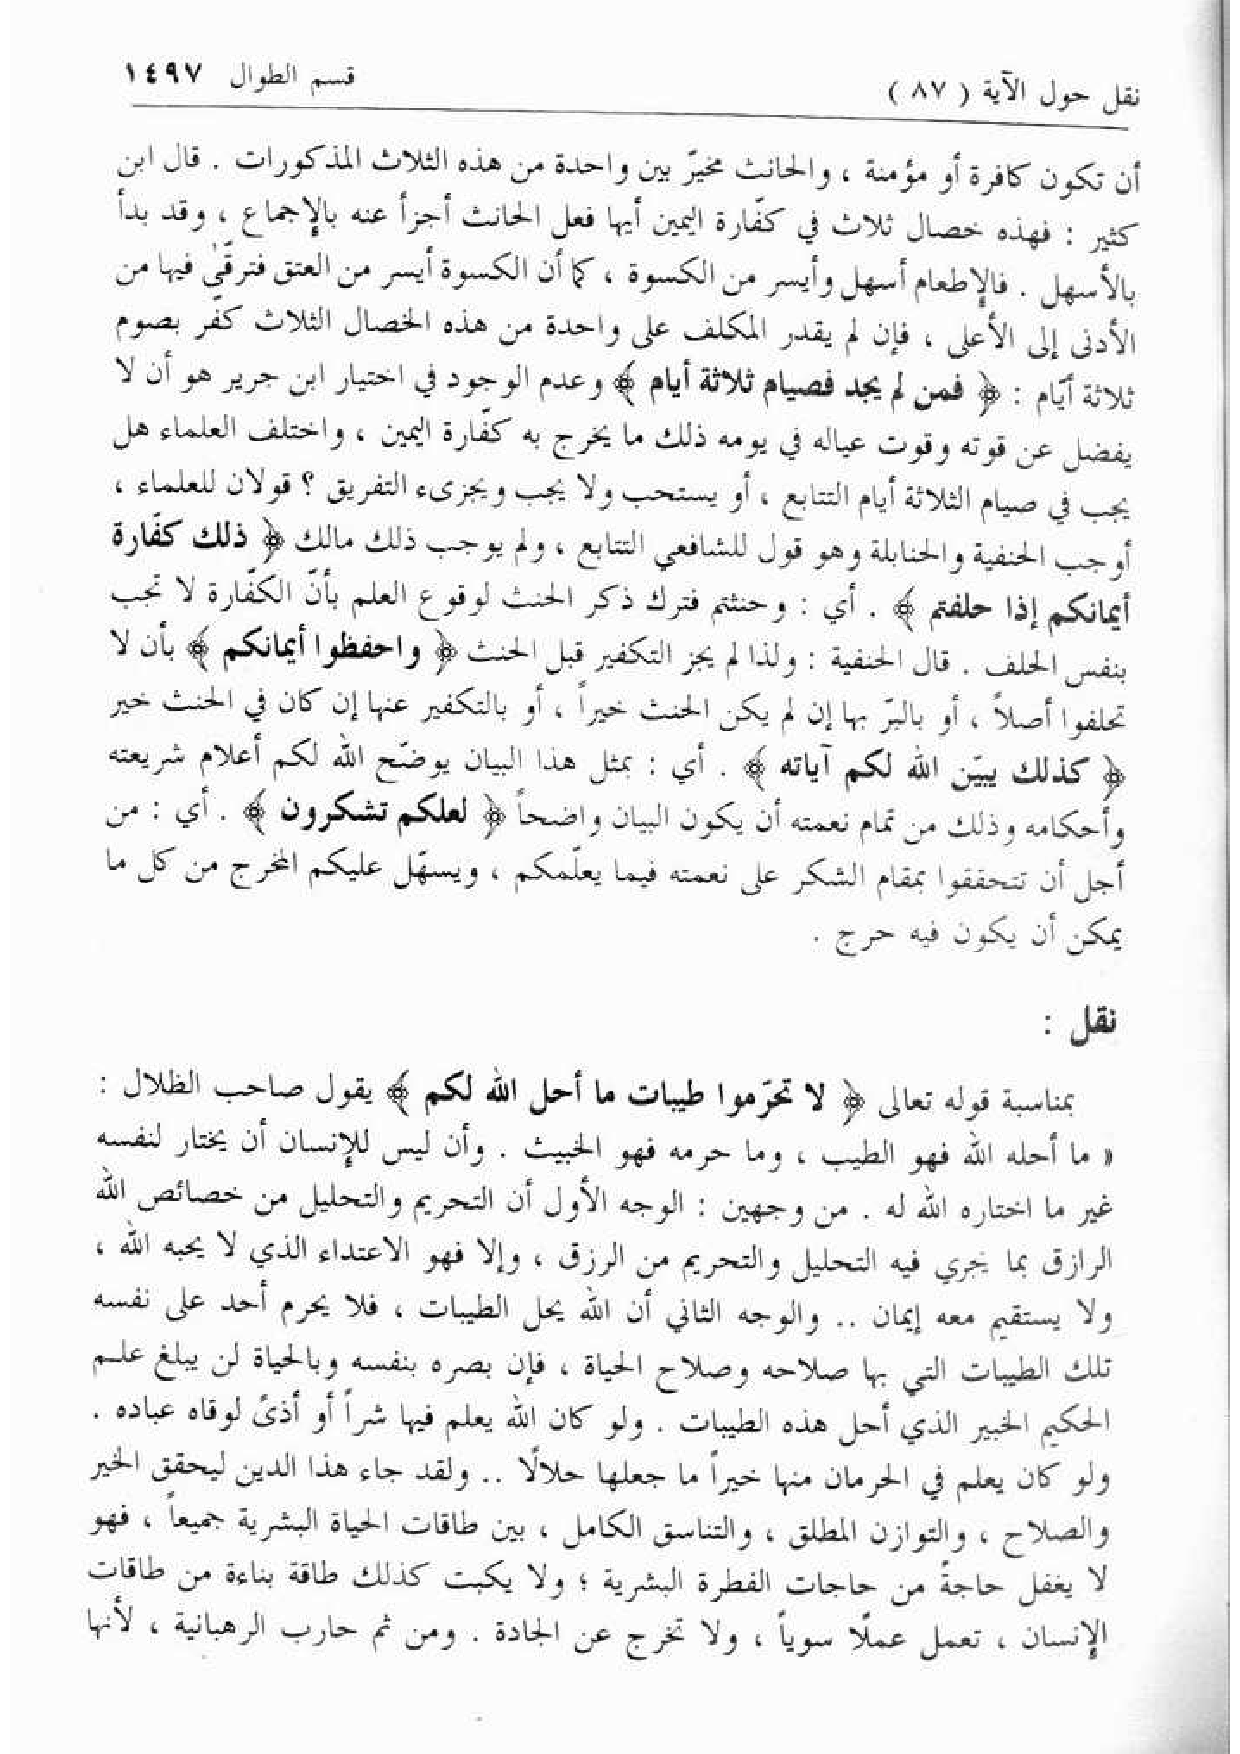 نقل حول الآية ( ٨٧ )
قسم الطوال ١٤٩٧
أن تكون كافرة أو مؤمنة ، والحانث مخيّر بين واحدة من هذه الثلاث المذكورات . قال ابن
كثير : فهذه خصال ثلاث في كفّارة اليمين أيها فعل الحانث أجزأ عنه بالإجماع ، وقد بدأ
بالأسهل . فالإطعام أسهل وأيسر من الكسوة ، كما أن الكسوة أيسر من العتق فترقّى فيها من
الأدنى إلى الأعلى ، فإن لم يقدر المكلف على واحدة من هذه الخصال الثلاث كفّر بصوم
ثلاثة أيّام : ﴿ فمن لم يجد فصيام ثلاثة أيام ﴾ وعدم الوجود في اختيار ابن جرير هو أن لا
يفضل عن قوته وقوت عياله في يومه ذلك ما يخرج به كفّارة اليمين ، واختلف العلماء هل
يجب في صيام الثلاثة أيام التتابع ، أو يستحب ولا يجب ويجزىء التفريق ؟ قولان للعلماء ،
أوجب الحنفية والحنابلة وهو قول للشافعي التتابع ، ولم يوجب ذلك مالك ﴿ ذلك كفّارة
أيمانكم إذا حلفتم ﴾ . أي : وحنثتم فترك ذكر الحنث لوقوع العلم بأنّ الكفّارة لا تجب
بنفس الحلف . قال الحنفية : ولذا لم يجز التكفير قبل الحنث ﴿ واحفظوا أيمانكم ﴾ بأن لا
تحلفوا أصلاً ، أو بالبرّ بها إن لم يكن الحنث خيراً ، أو بالتكفير عنها إن كان في الحنث خير
﴿ كذلك يبيّن الله لكم آياته ﴾ . أي : بمثل هذا البيان يوضّح الله لكم أعلام شريعته
وأحكامه وذلك من تمام نعمته أن يكون البيان واضحاً ﴿ لعلكم تشكرون ﴾ . أي : من
أجل أن تتحققوا بمقام الشكر على نعمته فيما يعلّمكم ، ويسهّل عليكم المخرج من كل ما
يمكن أن يكون فيه حرج .
نقل :
بمناسبة قوله تعالى ﴿ لا تحرّموا طيبات ما أحل الله لكم ﴾ يقول صاحب الظلال :
« ما أحله الله فهو الطيب ، وما حرمه فهو الخبيث . وأن ليس للإنسان أن يختار لنفسه
غير ما اختاره الله له . من وجهين : الوجه الأول أن التحريم والتحليل من خصائص الله
الرازق بما يجري فيه التحليل والتحريم من الرزق ، وإلا فهو الاعتداء الذي لا يحبه الله ،
ولا يستقيم معه إيمان .. والوجه الثاني أن الله يحل الطيبات ، فلا يحرم أحد على نفسه
تلك الطيبات التي بها صلاحه وصلاح الحياة ، فإن بصره بنفسه وبالحياة لن يبلغ علم
الحكيم الخبير الذي أحل هذه الطيبات . ولو كان الله يعلم فيها شراً أو أذىً لوقاه عباده .
ولو كان يعلم في الحرمان منها خيراً ما جعلها حلالًا .. ولقد جاء هذا الدين ليحقق الخير
والصلاح ، والتوازن المطلق ، والتناسق الكامل ، بين طاقات الحياة البشرية جميعاً ، فهو
لا يغفل حاجةً من حاجات الفطرة البشرية ؛ ولا يكبت كذلك طاقة بناءة من طاقات
الإنسان ، تعمل عملًا سوياً ، ولا تخرج عن الجادة . ومن ثم حارب الرهبانية ، لأنها